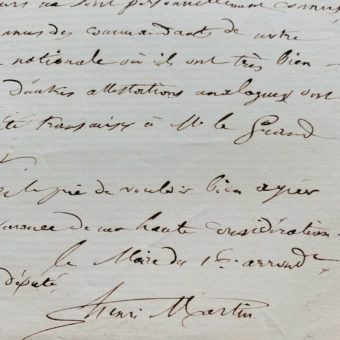 me sont personnellement connus
des commandants de notre
nationale où ils ont très bien
d'autres attestations analogues ont
été transmises à Mr le Grand
prie de vouloir bien agréer
de ma haute considération
le Maire du 16e arrondt
député,
Henri Martin